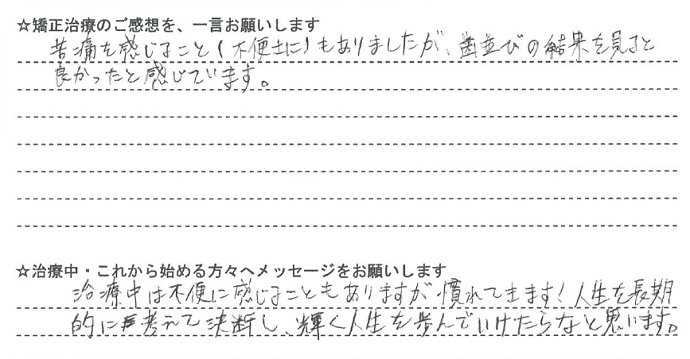 ☆矯正治療のご感想を、一言お願いします
苦痛を感じること(不便さに)もありましたが、歯並びの結果を見ると
良かったと感じています。
☆治療中・これから始める方々へメッセージをお願いします
治療中は不便に感じることもありますが慣れてきます！人生を長期
的に考えて決断し、輝く人生を歩んでいけたらなと思います。